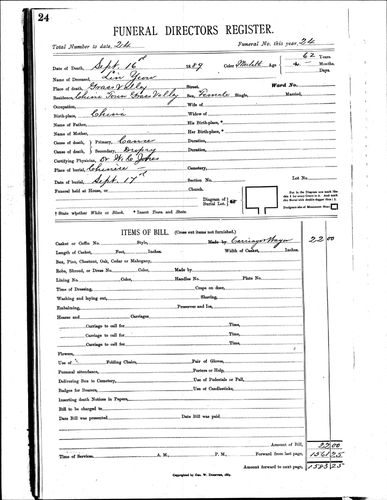 24
FUNERAL DIRECTORS REGISTER.
Total Number to date, 24 Funeral No. this year, 24
Date of Death, Sept. 16th 1889 Color, Age 62 Years.
Months.
Days.
Name of Deceased, Lin Yew
Place of Death, Grass Valley Street, Ward No.
Residence, China Town Grass Valley Sex, Female Single, Married,
Occupation, Wife of
Birth-place, China Widow of
Name of Father, His Birth-place, *
Name of Mother, Her Birth-place, *
Cause of death, Primary, Cancer Duration,
Cause of death, Secondary, Dropsy Duration,
Certifying Physician, Dr W. C. Jones
Place of burial, Chinese Cemetery,
Date of burial, Sept. 17th Section No. Lot No.
Funeral held at House, or Church.
Diagram of Burial Lot.
† State whether White or Black. * Insert Town and State.
ITEMS OF BILL. (Cross out items not furnished.)
Casket or Coffin No. Style, Made by Carriage Wagon 22.00
Length of Casket, Feet, Inches. Width of Casket, Inches.
Box, Pine, Chestnut, Oak, Cedar or Mahogany,
Robe, Shroud, or Dress No. Color, Made by
Lining No. Color, Handles No. Plate No.
Time of Dressing, Crape on door,
Washing and laying out, Shaving,
Embalming, Preserver and Ice,
Hearse and Carriages.
Carriage to call for Time,
Carriage to call for Time,
Carriage to call for Time,
Carriage to call for Time,
Flowers,
Use of Folding Chairs, Pair of Gloves,
Personal attendance, Porters or Help,
Delivering Box in Cemetery, Use of Pedestals or Pall,
Badges for Bearers, Use of Candlesticks,
Inserting death Notices in Papers,
Bill to be charged to
Date Bill was presented Date Bill was paid.
Amount of Bill, 22.00
Time of Services, A. M., P. M. Forward from last page, 1561.25
Amount forward to next page, 1583.25